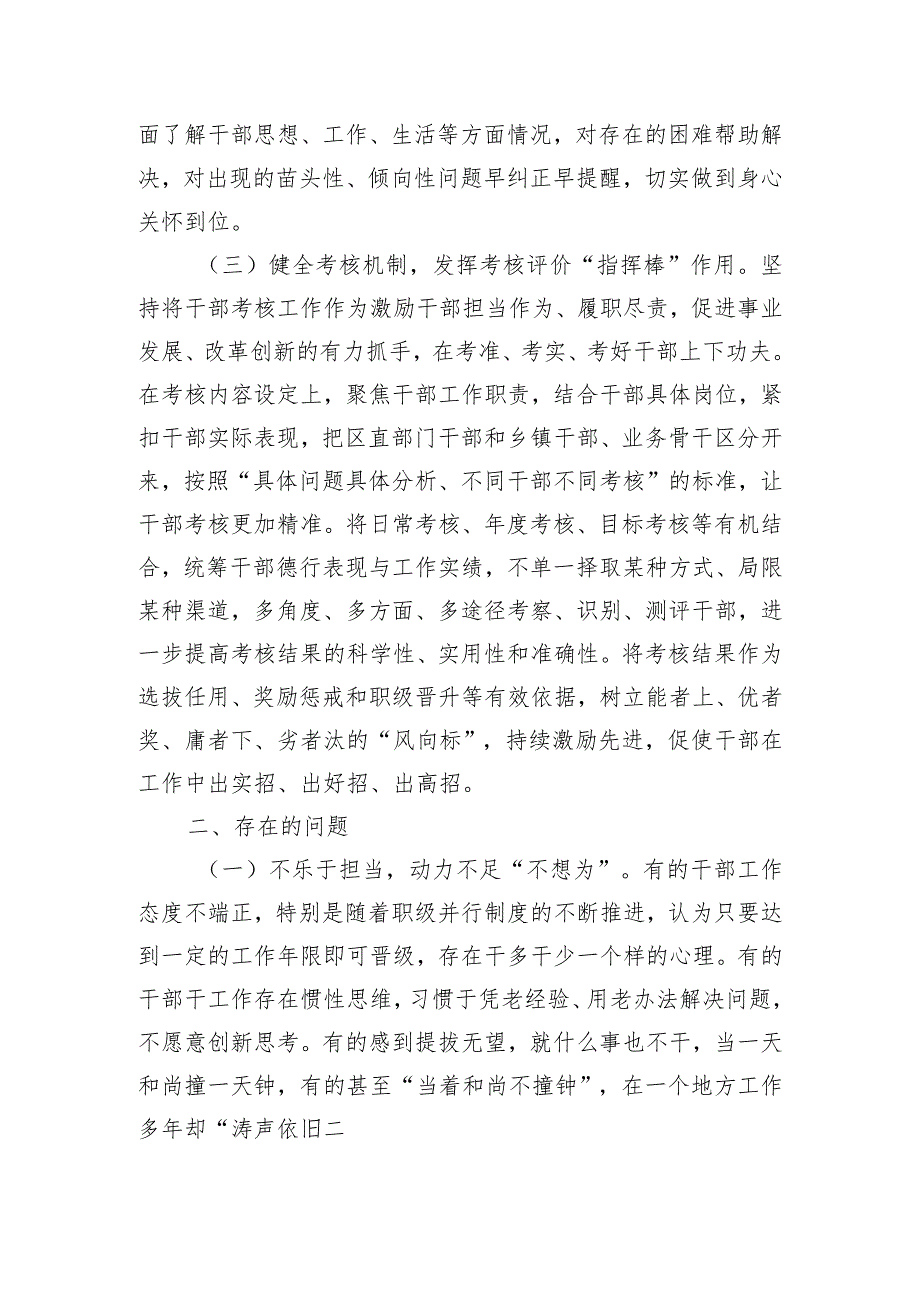 面了解干部思想、工作、生活等方面情况，对存在的困难帮助解
决，对出现的苗头性、倾向性问题早纠正早提醒，切实做到身心
关怀到位。
（三）健全考核机制，发挥考核评价“指挥棒”作用。坚
持将干部考核工作作为激励干部担当作为、履职尽责，促进事业
发展、改革创新的有力抓手，在考准、考实、考好干部上下功夫。
在考核内容设定上，聚焦干部工作职责，结合干部具体岗位，紧
扣干部实际表现，把区直部门干部和乡镇干部、业务骨干区分开
来，按照“具体问题具体分析、不同干部不同考核”的标准，让
干部考核更加精准。将日常考核、年度考核、目标考核等有机结
合，统筹干部德行表现与工作实绩，不单一择取某种方式、局限
某种渠道，多角度、多方面、多途径考察、识别、测评干部，进
一步提高考核结果的科学性、实用性和准确性。将考核结果作为
选拔任用、奖励惩戒和职级晋升等有效依据，树立能者上、优者
奖、庸者下、劣者汰的“风向标”，持续激励先进，促使干部在
工作中出实招、出好招、出高招。
二、存在的问题
（一）不乐于担当，动力不足“不想为”。有的干部工作
态度不端正，特别是随着职级并行制度的不断推进，认为只要达
到一定的工作年限即可晋级，存在干多干少一个样的心理。有的
干部干工作存在惯性思维，习惯于凭老经验、用老办法解决问题，
不愿意创新思考。有的感到提拔无望，就什么事也不干，当一天
和尚撞一天钟，有的甚至“当着和尚不撞钟”，在一个地方工作
多年却“涛声依旧二